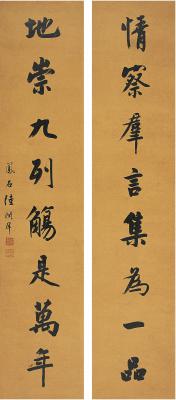 情察群言集為一品
地崇九列觴是萬年
鳳石陸潤庠